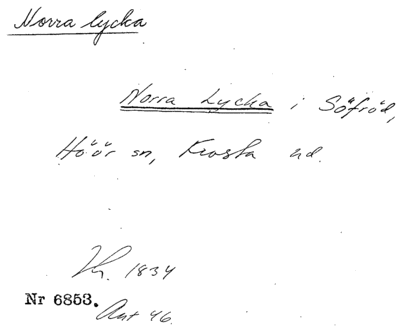 Norra lycka
Norra Lycka i Söfröd,
Höör sn, Frosta hd.
Th. 1834
Nr 6853.
Ant 46.